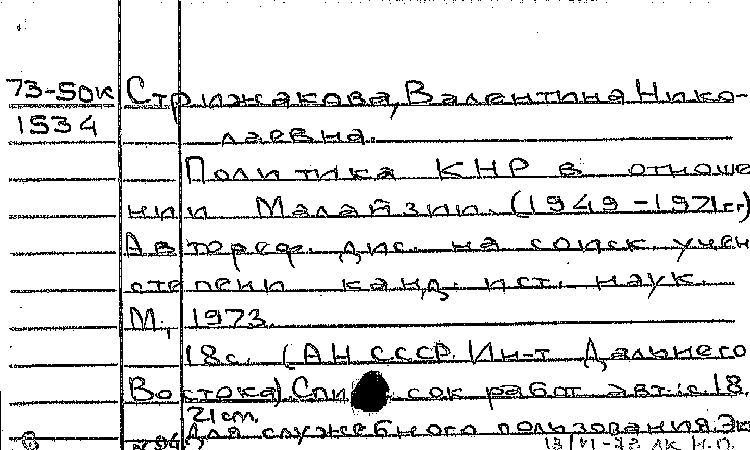 73-50к Стрижакова, Валентина Нико-
1534 лаевна.
Политика КНР в отноше
нии Малайзии. (1949-1971гг)
Автореф. дис. на соиск. учен
степени канд. ист. наук.
М., 1973.
18с. (АН СССР. Ин-т Дальнего
Востока). Спи сок работ авт.: с. 18.
21 см.
Для служебного пользования. Эк